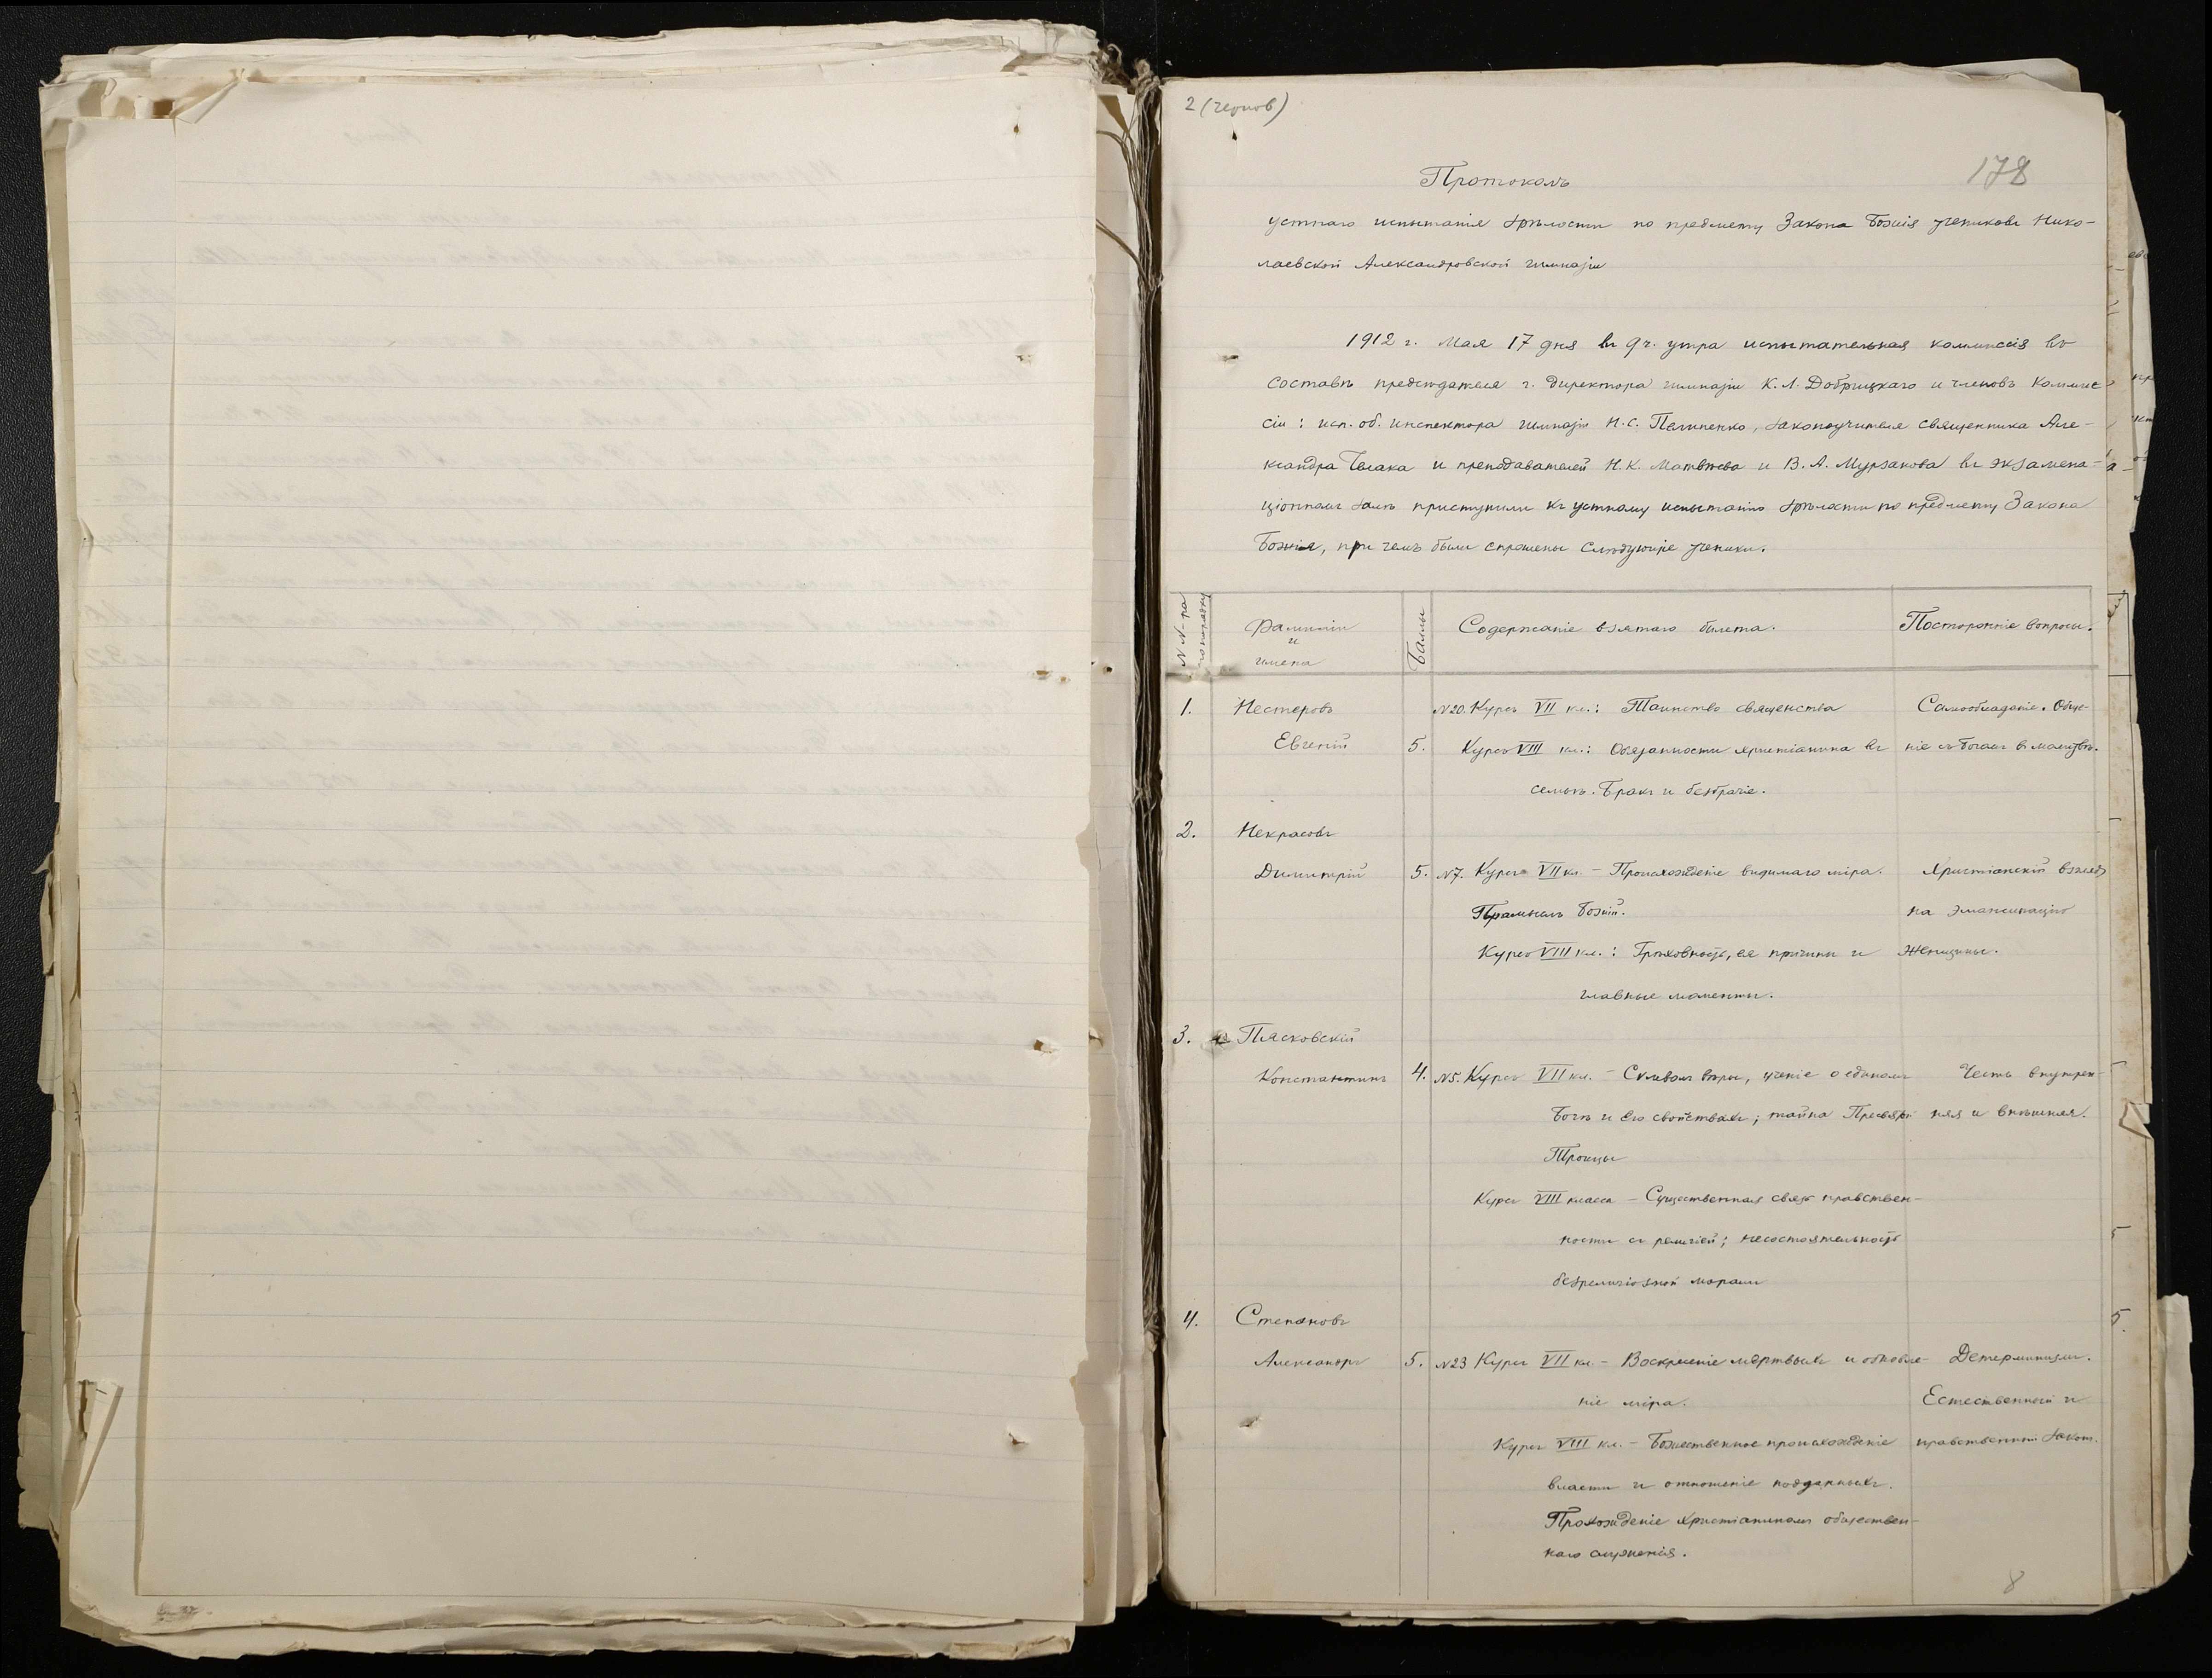 2 (чернов)
178
Протоколъ
устнаго испытанія зрѣлости по предмету Закона Божія учениковъ Нико-
лаевской Александровской гимназіи
1912 г. Мая 17 дня въ 9 ч. утра испытательная комиссія въ
составѣ предсѣдателя г. директора гимназіи К. Л. Добрицкаго и членовъ Коммис
сіи: исп. об. инспектора гимназіи Н. С. Пелипенко, законоучителя священника Але-
ксандра Чехака и преподавателей Н. К. Матвѣева и В. А. Мурзакова въ экзамена-
ціонномъ залѣ приступили къ устному испытанію зрѣлости по предмету Закона
Божія, при чемъ были спрошены слѣдующіе ученики.
N N-ра по порядку
Фамиліи и имена
Баллы
Содержаніе взятаго билета.
Посторонніе вопросы.
1. Нестеровъ N 20. Курсъ VII кл.: Таинство священства Самообладаніе. Обще-
Евгеній 5. Курсъ VIII кл.: Обязанности христіанина въ ніе съ Богомъ въ молитвѣ.
семьѣ. Бракъ и безбрачіе.
2. Некрасовъ
Димитрій 5. N 7. Курсъ VII кл. – Происхожденіе видимаго міра. Христіанскій взглядъ
Промыслъ Божій. на эмансипацію
Курсъ VIII кл.: Грѣховность, ея причины и женщины.
главные моменты.
3. Плясковскій
Константинъ 4. N 5. Курсъ VII кл. – Символъ вѣры, ученіе о единомъ Честь внутрен-
Богѣ и Его свойствахъ; тайна Пресвятой няя и внѣшняя.
Троицы
Курсъ VIII класса – Существенная связь нравствен-
ности съ религіей; несостоятельность
безрелигіозной морали
4. Степановъ
Александръ 5. N 23 Курсъ VII кл. – Воскресеніе мертвыхъ и обновле- Детерминизмъ.
ніе міра. Естественный и
Курсъ VIII кл. – Божественное происхожденіе нравственный законъ.
власти и отношеніе подданныхъ.
Прохожденіе христіаниномъ обществен-
наго служенія.
8